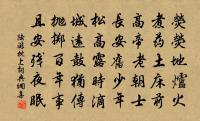 熒熒地爐火
煮藥土床前
高帝老朝士
長安舊少年
松高露時滴
城遠鼓獨傳
拋擲百年事
且安殘夜眠
陸游枕上詞